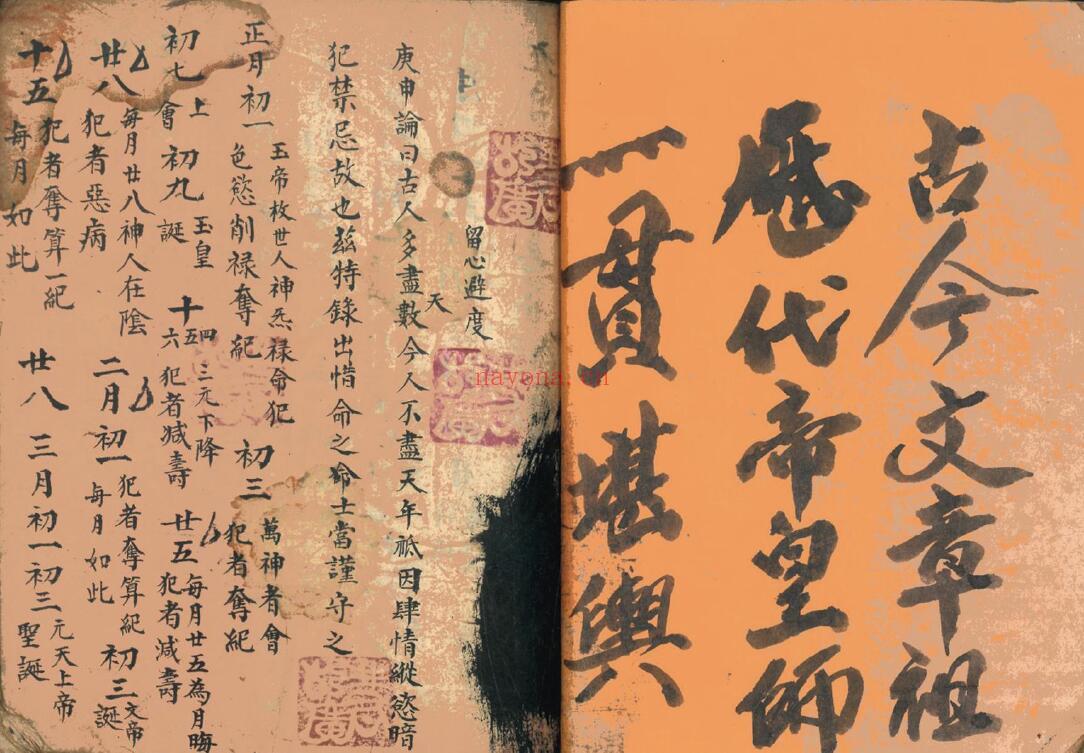 古今文章祖
歷代帝皇師
一貫堪輿
留心避度
庚申論曰古人多盡數今人不盡天年祗因肆情縱慾暗
天
犯禁忌故也茲特錄出惜命之士當謹守之
正月初一
玉帝校世人神炁祿命犯
色慾削祿奪紀
初三
萬神者會
犯者奪紀
初七
上會
初九
玉皇
誕
十四五六
三元下降
犯者減壽
廿五
每月廿五為月晦
犯者減壽
廿八
每月廿八神人在陰
犯者惡病
二月初一
犯者奪算紀
每月如此
初三
文帝
誕
十五
犯者奪算一紀
每月如此
廿八
三月初一初三
元天上帝
聖誕
nayona.cn